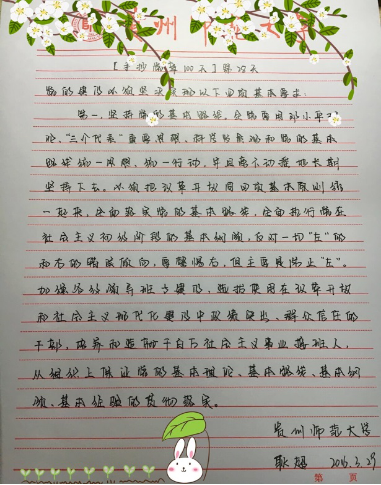 贵州师范大学
【手抄党章100天】第29天
党的建设必须坚决实现以下四项基本要求:
第一,坚持党的基本路线。全党要用邓小平理
论、“三个代表”重要思想、科学发展观和党的基本
路线统一思想,统一行动,并且毫不动摇地长期
坚持下去。必须把改革开放同四项基本原则统
一起来,全面落实党的基本路线,全面执行党在
社会主义初级阶段的基本纲领,反对一切“左”的
和右的错误倾向,要警惕右,但主要是防止“左”。
加强各级领导班子建设,选拔使用在改革开放
和社会主义现代化建设中政绩突出、群众信任的
干部,培养和造就千百万社会主义事业接班人,
从组织上保证党的基本理论、基本路线、基本纲
领、基本经验的贯彻落实。
贵州师范大学
2016.3.29
第 页